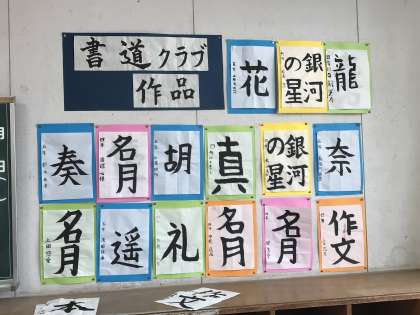 書道クラブ
作品
花
銀河
の星
龍
奏
名月
胡
真
銀河
の星
奈
名月
遥
礼
名月
名月
作文